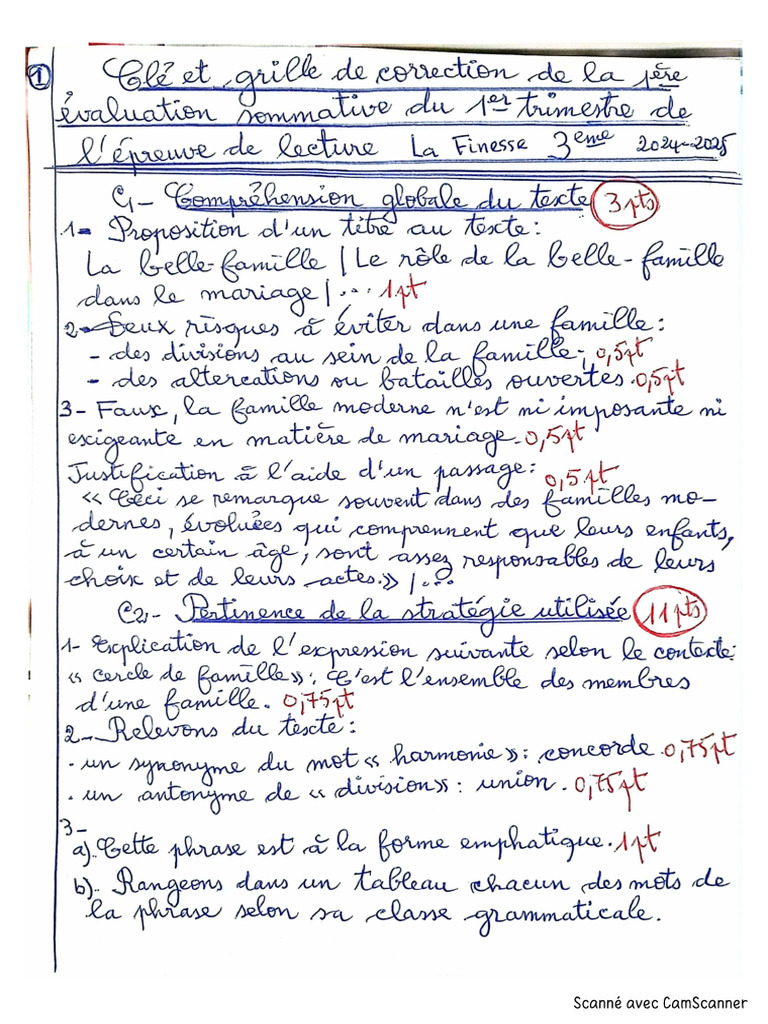 1 Clé et grille de correction de la 1ère
évaluation sommative du 1er trimestre de
l'épreuve de lecture La Finesse 3eme 2024-2025
C1- Compréhension globale du texte 3 pts
1- Proposition d'un titre au texte:
La belle-famille / Le rôle de la belle-famille
dans le mariage / ... 1pt
2- Deux risques à éviter dans une famille:
- des divisions au sein de la famille; 0,5pt
- des altercations ou batailles ouvertes. 0,5pt
3- Faux, la famille moderne n'est ni imposante ni
exigeante en matière de mariage. 0,5pt
Justification à l'aide d'un passage: 0,5pt
« Ceci se remarque souvent dans des familles mo-
dernes, évoluées qui comprennent que leurs enfants,
à un certain âge, sont assez responsables de leurs
choix et de leurs actes.» / ...
C2- Pertinence de la stratégie utilisée 11 pts
1- Explication de l'expression suivante selon le contexte:
« cercle de famille»: C'est l'ensemble des membres
d'une famille. 0,75pt
2- Relevons du texte:
. un synonyme du mot « harmonie»: concorde. 0,75pt
. un antonyme de « division»: union. 0,75pt
3-
a). Cette phrase est à la forme emphatique. 1pt
b). Rangeons dans un tableau chacun des mots de
la phrase selon sa classe grammaticale.
Scanné avec CamScanner